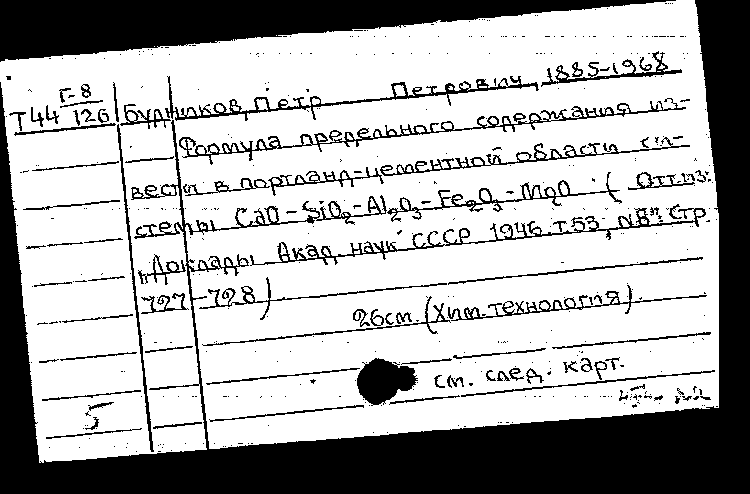 Г-8
Т44 126 Будников, Петр Петрович, 1885-1968
Формула предельного содержания из-
вести в портланд-цементной области сис-
темы CaO-SiO2-Al2O3-Fe2O3-MgO (Отт.из:
„Доклады Акад. наук СССР 1946.т.53, N8". Стр.
727-728)
26см. (Хим. технология).
см. след. карт.
5